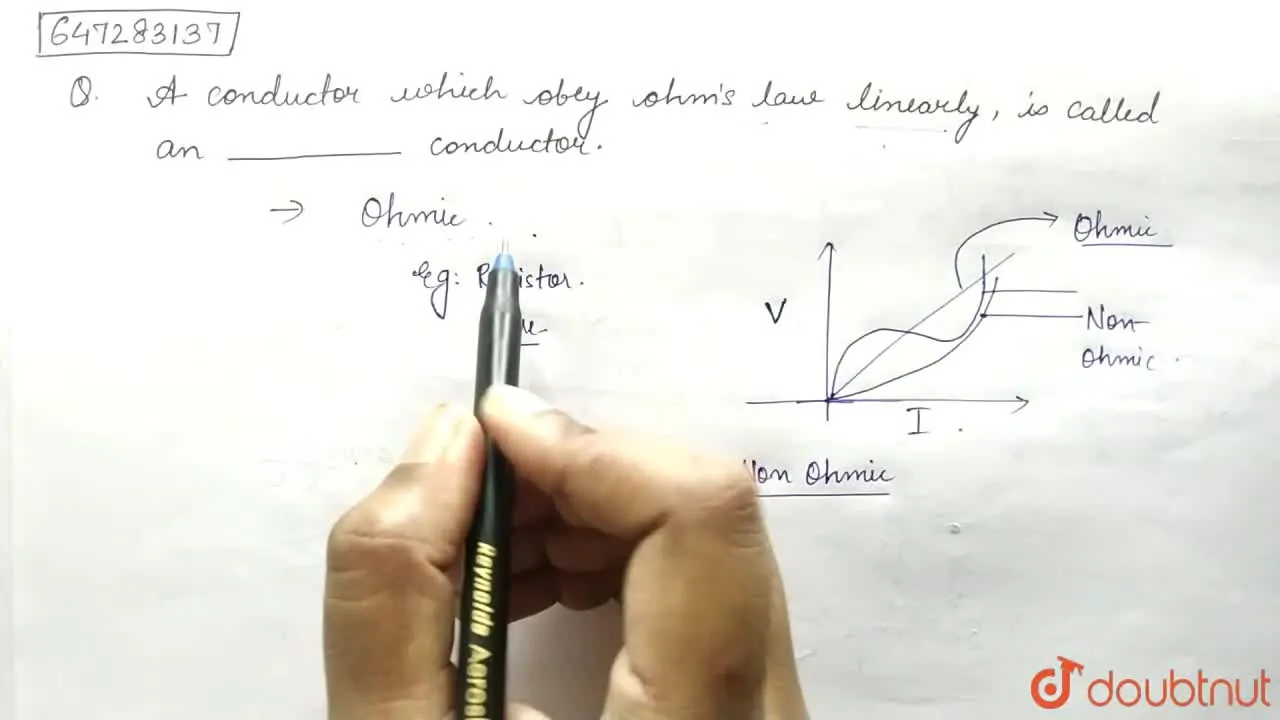 647283137
Q. A conductor which obey ohm's law linearly, is called
an ________ conductor.
→ Ohmic.
Eg:
Ohmic
V
Non-
Ohmic.
I.
Non Ohmic
Reynolds
doubtnut